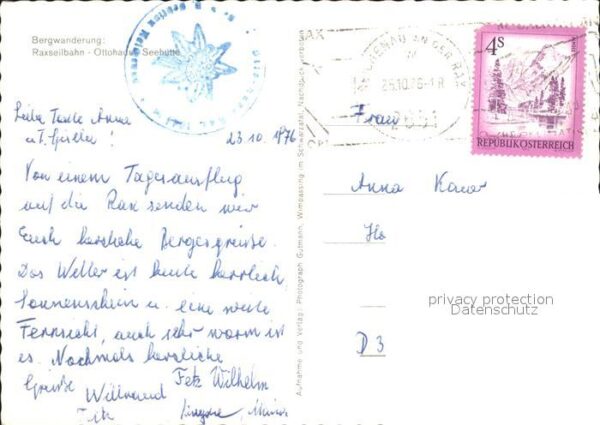 Bergwanderung:
Raxseilbahn - Ottohaus - Seehütte
Liebe Tante Anna
u. T.
23.10.1976
Von einem Tagesausflug
auf die Rax senden wir
Euch herzliche Bergesgrüsse.
Das Wetter ist heute herrlich
Sonnenschein u. eine weite
Fernsicht, auch sehr warm ist
es. Nochmals herzliche
Grüße Willtraud Fetz Wilhelm
Aufnahme und Verlag: Photograph Gutmann, Wimpassing im Schwarzatal, Nachdruck verboten
AN DER RAX
25.10.76
2651
4S
REPUBLIK ÖSTERREICH
Frau
Anna
D3
privacy protection
Datenschutz